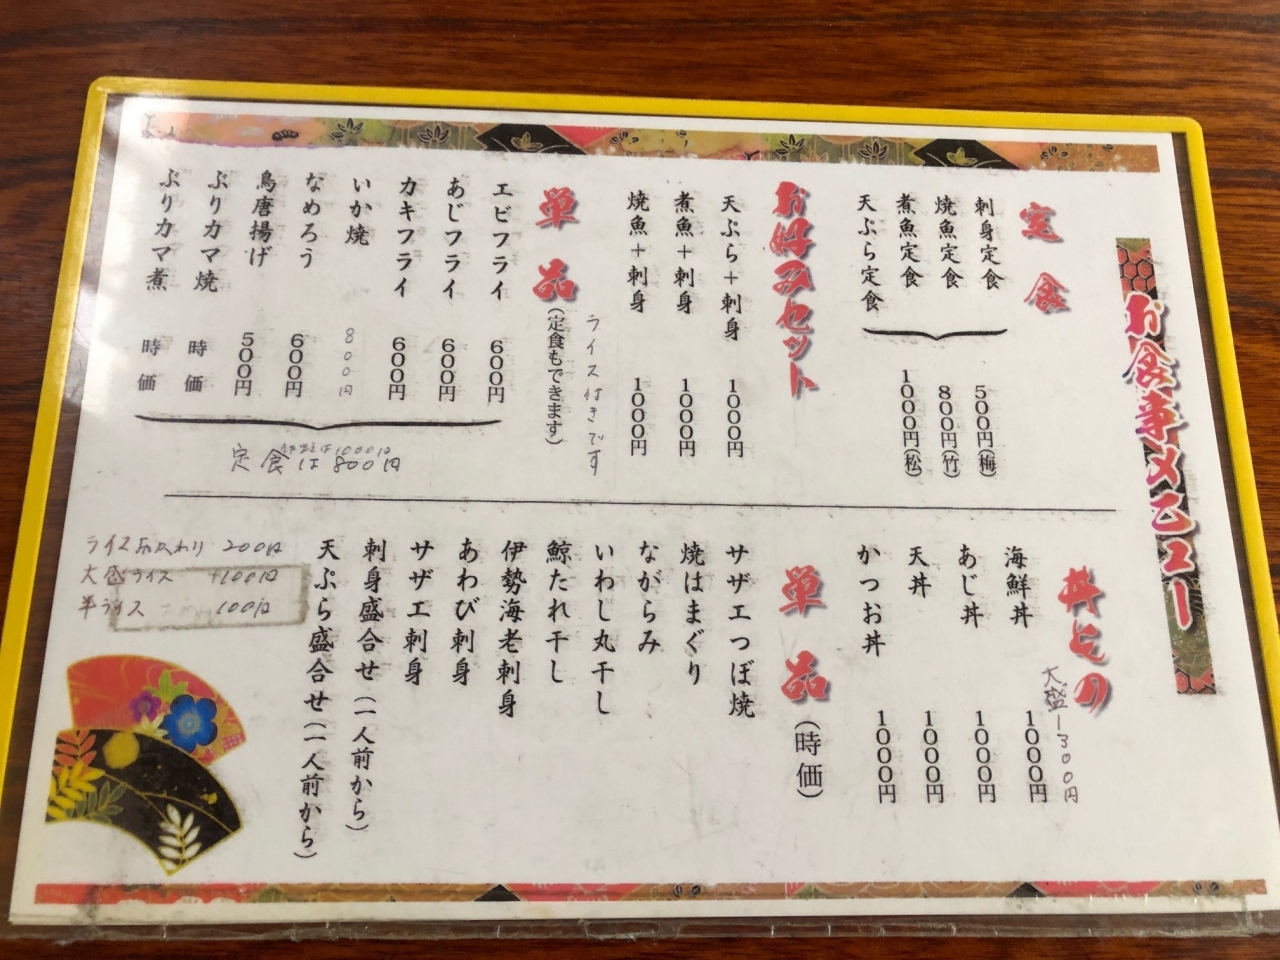 お食事メニュー
定食
刺身定食
焼魚定食
煮魚定食
天ぷら定食
500円(梅)
800円(竹)
1000円(松)
お好みセット
天ぷら+刺身 1000円
煮魚+刺身 1000円
焼魚+刺身 1000円
ライス付きです
単品(定食もできます)
エビフライ 600円
あじフライ 600円
カキフライ 600円
いか焼 800円
なめろう 600円
鳥唐揚げ 500円
ぶりカマ焼 時価
ぶりカマ煮 時価
定食は800円
1000円
丼もの
大盛1300円
海鮮丼 1000円
あじ丼 1000円
天丼 1000円
かつお丼 1000円
単品(時価)
サザエつぼ焼
焼はまぐり
ながらみ
いわし丸干し
鯨たれ干し
伊勢海老刺身
あわび刺身
サザエ刺身
刺身盛合せ(一人前から)
天ぷら盛合せ(一人前から)
ライスおかわり 200円
大盛ライス +100円
半ライス 100円